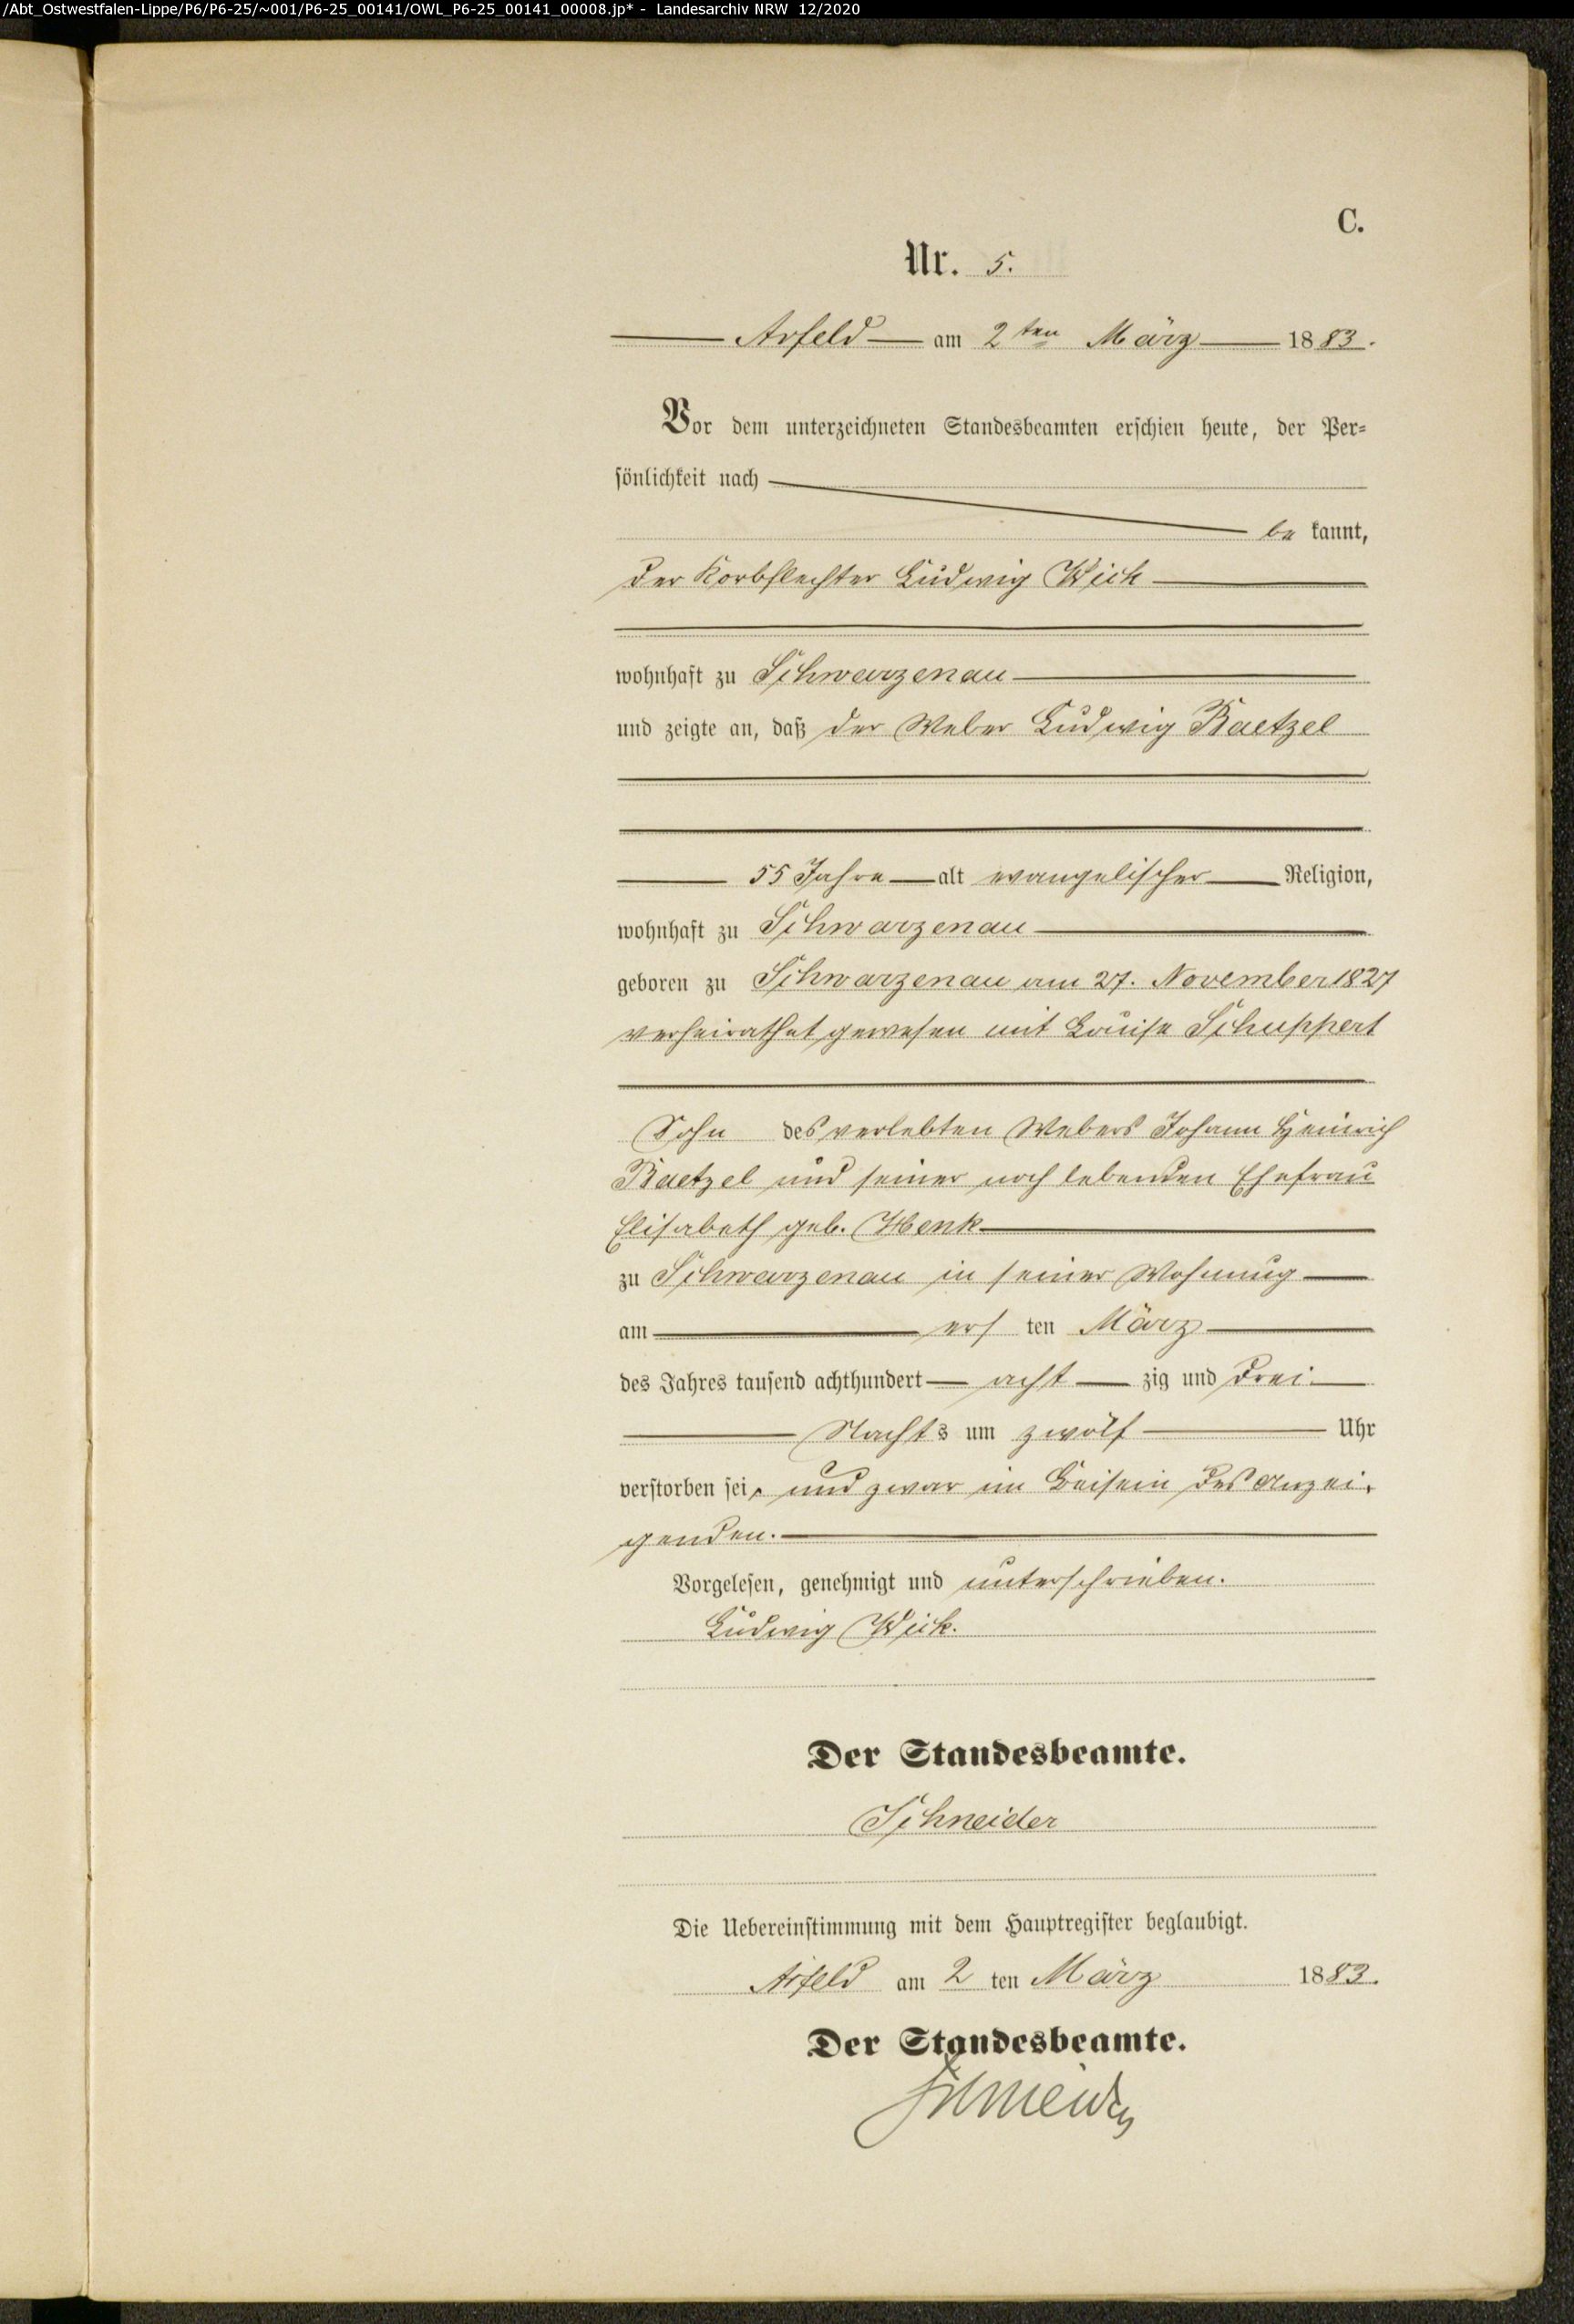 /Abt_Ostwestfalen-Lippe/P6/P6-25/~001/P6-25_00141/OWL_P6-25_00141_00008.jp* - Landesarchiv NRW 12/2020
C.
Nr. 5.
Arfeld am 2ten März 1883.
Vor dem unterzeichneten Standesbeamten erschien heute, der Per-
sönlichkeit nach
be kannt,
der Korbflechter Ludwig Wick
wohnhaft zu Schwarzenau
und zeigte an, daß der Weber Ludwig Baetzel
55 Jahre alt evangelischer Religion,
wohnhaft zu Schwarzenau
geboren zu Schwarzenau am 27. November 1827
verheirathet gewesen mit Louise Schuppert
Sohn des verlebten Webers Johann Heinrich
Baetzel und seiner noch lebenden Ehefrau
Elisabeth geb. Henk
zu Schwarzenau in seiner Wohnung
am ers ten März
des Jahres tausend achthundert acht zig und drei
Nachts um zwölf Uhr
verstorben sei, und zwar im Beisein des Anzei-
genden.
Vorgelesen, genehmigt und unterschrieben.
Ludwig Wick.
Der Standesbeamte.
Schneider
Die Uebereinstimmung mit dem Hauptregister beglaubigt.
Arfeld am 2 ten März 1883.
Der Standesbeamte.
Schneider